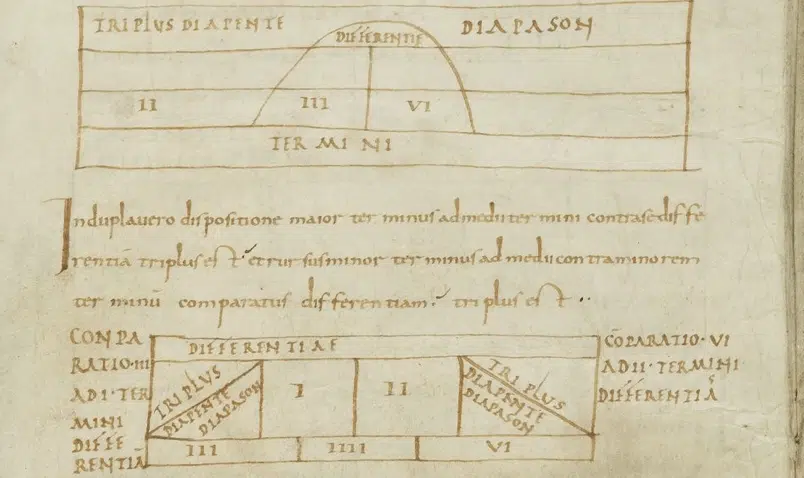 TRIPLUS DIAPENTE DIFFERENTIE DIAPASON
II III VI
TERMINI
Induplavero dispositione maior terminus admediitermini contrasediffe
rentiā triplus est et rursusminor terminus ad medii contraminorem
terminū comparatus differentiam triplus est
CONPA
RATIO·III
ADI·TER
MINI
DIFFE
RENTIĀ
DIFFERENTIAE
TRIPLUS
DIAPENTE
DIAPASON
I II
TRIPLUS
DIAPENTE
DIAPASON
III IIII VI
CŌPARATIO·VI
ADII·TERMINI
DIFFERENTIĀ